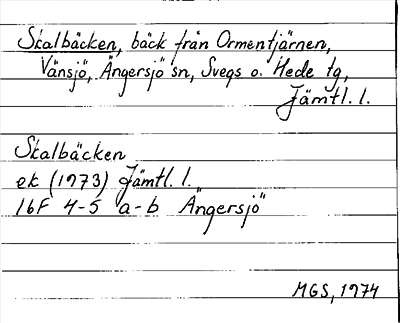 Skalbäcken, bäck från Ormentjärnen,
Vänsjö, Ängersjö sn, Svegs o. Hede tg,
Jämtl. l.
Skalbäcken
ek (1973) Jämtl. l.
16F 4-5 a-b Ängersjö
MGS, 1974